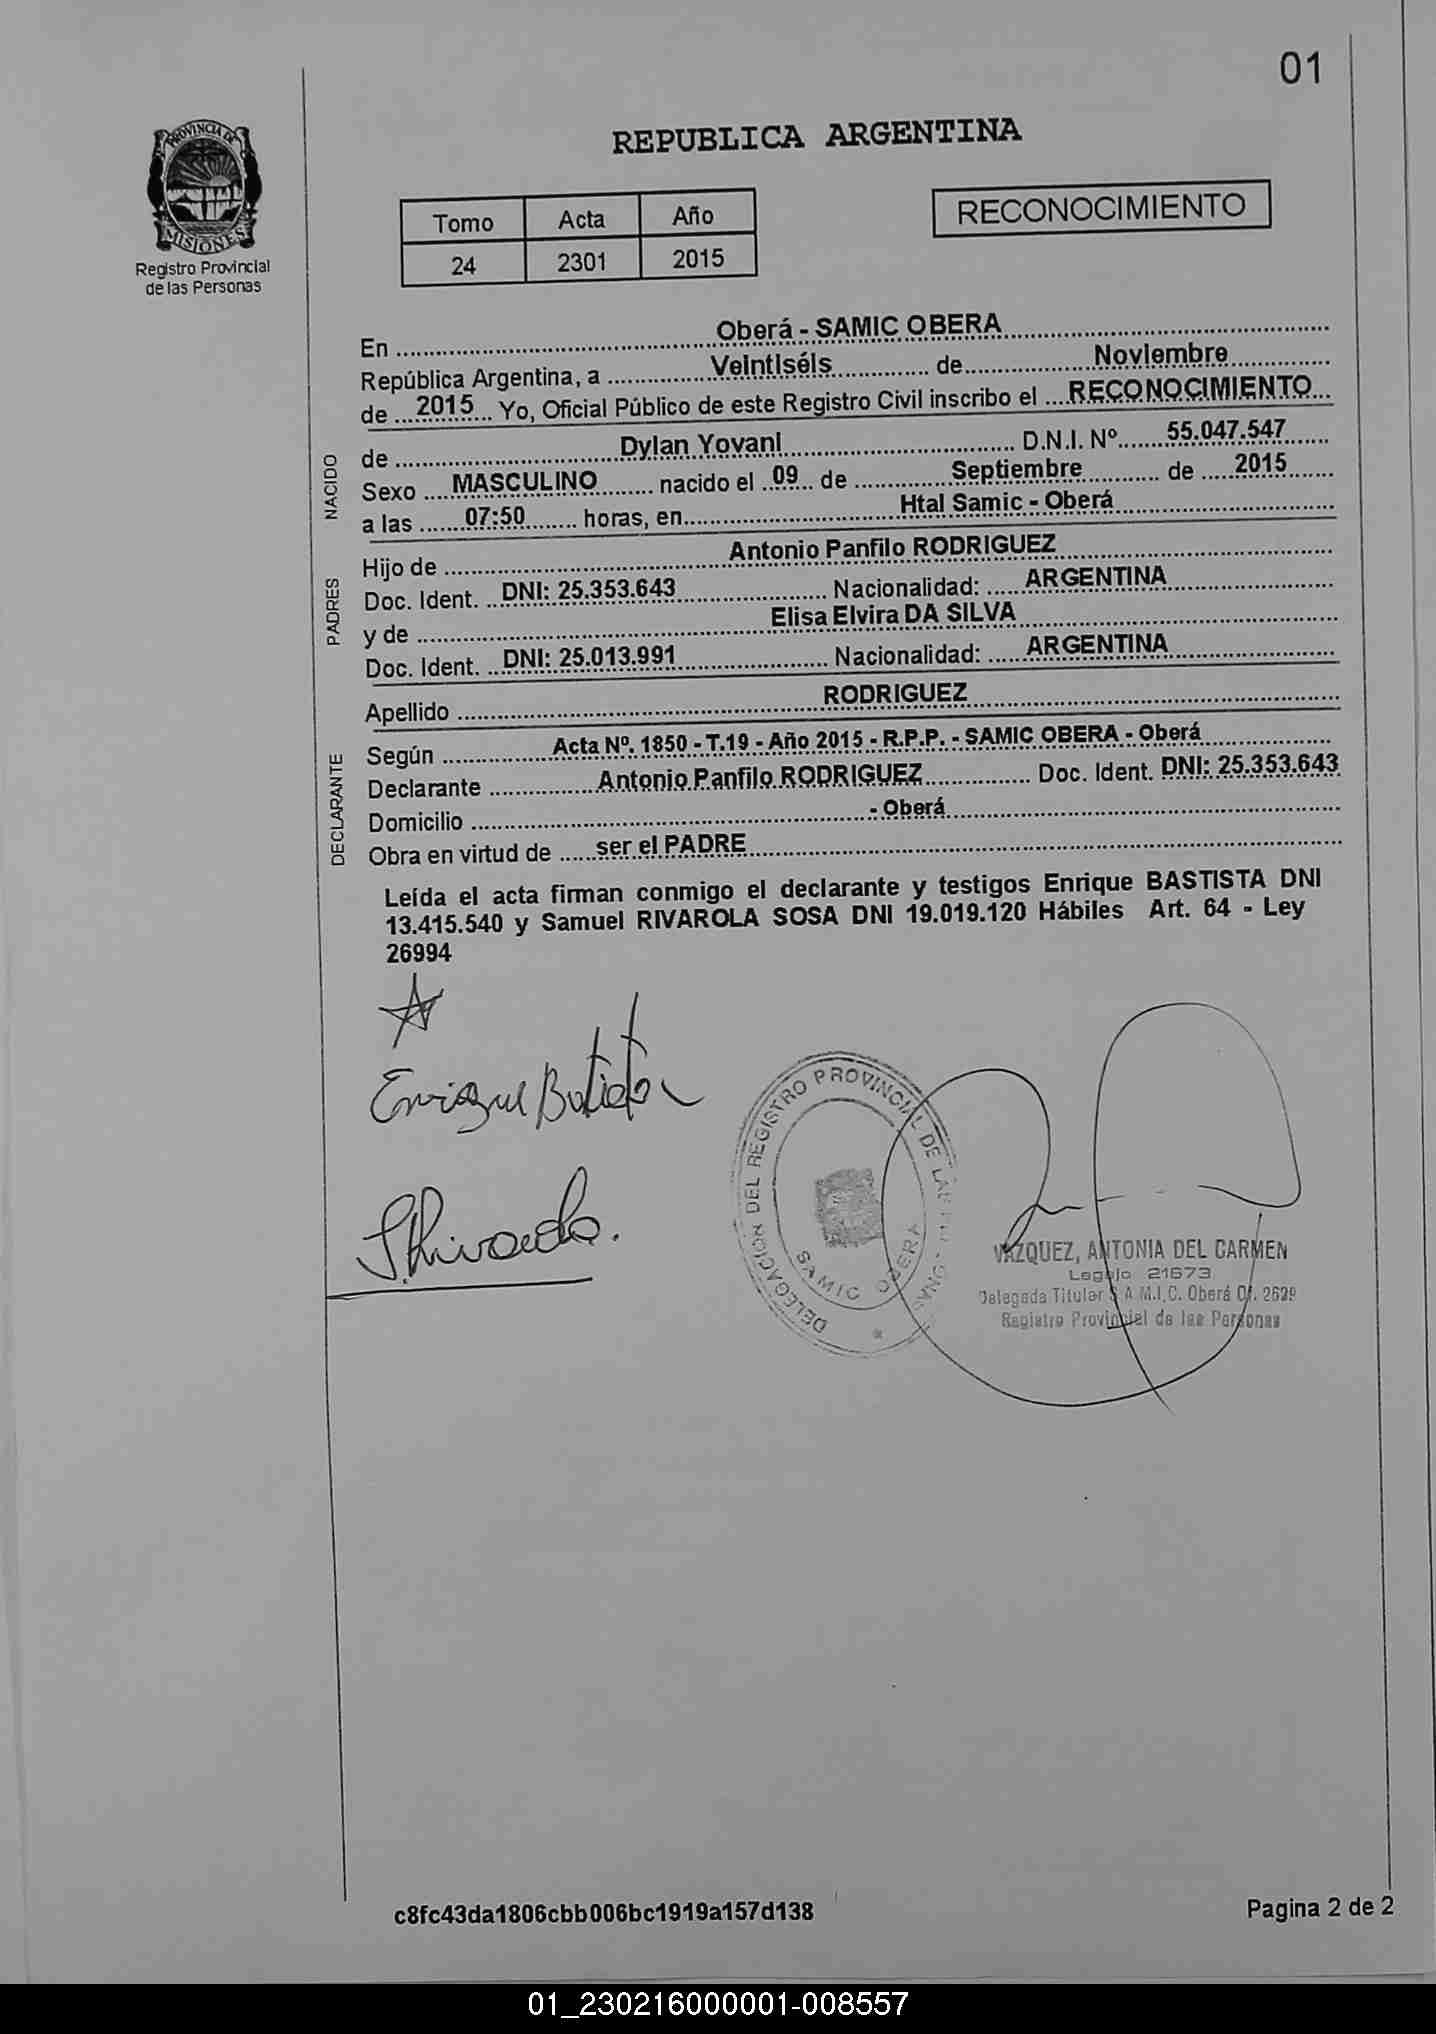 01
REPUBLICA ARGENTINA
PROVINCIA DE
MISIONES
Registro Provincial
de las Personas
Tomo Acta Año
24 2301 2015
RECONOCIMIENTO
En Oberá - SAMIC OBERA
República Argentina, a Veintiséis de Noviembre
de 2015 Yo, Oficial Público de este Registro Civil inscribo el RECONOCIMIENTO
NACIDO
de Dylan Yovani D.N.I. Nº 55.047.547
Sexo MASCULINO nacido el 09 de Septiembre de 2015
a las 07:50 horas, en Htal Samic - Oberá
PADRES
Hijo de Antonio Panfilo RODRIGUEZ
Doc. Ident. DNI: 25.353.643 Nacionalidad: ARGENTINA
y de Elisa Elvira DA SILVA
Doc. Ident. DNI: 25.013.991 Nacionalidad: ARGENTINA
Apellido RODRIGUEZ
DECLARANTE
Según Acta Nº. 1850 - T.19 - Año 2015 - R.P.P. - SAMIC OBERA - Oberá
Declarante Antonio Panfilo RODRIGUEZ Doc. Ident. DNI: 25.353.643
Domicilio - Oberá
Obra en virtud de ser el PADRE
Leída el acta firman conmigo el declarante y testigos Enrique BASTISTA DNI
13.415.540 y Samuel RIVAROLA SOSA DNI 19.019.120 Hábiles Art. 64 - Ley
26994
Enrique
DELEGACION DEL REGISTRO PROVINCIAL DE LAS
SAMIC OBERA
VAZQUEZ, ANTONIA DEL CARMEN
Legajo 21673
Delegada Titular S.A.M.I.C. Oberá Of. 2629
Registro Provincial de las Personas
c8fc43da1806cbb006bc1919a157d138
Pagina 2 de 2
01_230216000001-008557